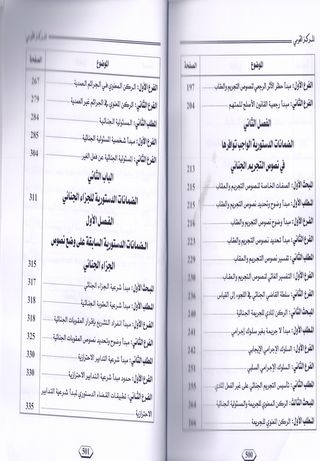 المركز القومي
الموضوع
الصفحة
الفرع الأول: مبدأ حظر الأثر الرجعي لنصوص التجريم والعقاب 197
الفرع الثاني: مبدأ رجعية القانون الأصلح للمتهم 204
الفصل الثاني
الضمانات الدستورية الواجب توافرها
في نصوص التجريم الجنائي 213
المبحث الأول: الصفات الخاصة لنصوص التجريم والعقاب 215
المطلب الأول: مبدأ وضوح وتحديد نصوص التجريم والعقاب 215
الفرع الأول: مبدأ وضوح نصوص التجريم والعقاب 216
الفرع الثاني: مبدأ تحديد نصوص التجريم والعقاب 223
المطلب الثاني: تفسير نصوص التجريم والعقاب 229
الفرع الأول: التفسير الغائي لنصوص التجريم والعقاب 230
الفرع الثاني: سلطة القاضي الجنائي في اللجوء إلى القياس 236
المبحث الثاني: الركن المادي للجريمة الجنائية 240
المطلب الأول: مبدأ لا جريمة بغير سلوك إجرامي 241
الفرع الأول: السلوك الإجرامي الإيجابي 242
الفرع الثاني: السلوك الإجرامي السلبي 251
المطلب الثاني: تأسيس التجريم الجنائي على غير الفعل المادي
المبحث الثالث: الركن المعنوي للجريمة والمسئولية الجنائية
المطلب الأول: الركن المعنوي للجريمة
500
المركز القومي
الموضوع
الصفحة
الفرع الأول: الركن المعنوي في الجرائم العمدية 267
الفرع الثاني: الركن المعنوي في الجرائم غير العمدية 279
المطلب الثاني: المسئولية الجنائية 284
الفرع الأول: مبدأ شخصية المسئولية الجنائية 285
الفرع الثاني: المسئولية الجنائية عن فعل الغير 304
الباب الثاني
الضمانات الدستورية للجزاء الجنائي 311
الفصل الأول
الضمانات الدستورية السابقة على وضع نصوص
الجزاء الجنائي 315
المبحث الأول: مبدأ شرعية الجزاء الجنائي 317
المطلب الأول: مبدأ شرعية العقوبة الجنائية 318
الفرع الأول: مبدأ انفراد التشريع بإقرار العقوبات الجنائية 318
الفرع الثاني: مبدأ وضوح وتحديد نصوص العقوبات الجنائية 325
المطلب الثاني: مبدأ شرعية التدابير الاحترازية 330
الفرع الأول: حدود مبدأ شرعية التدابير الاحترازية 330
الفرع الثاني: تطبيقات القضاء الدستوري لمبدأ شرعية التدابير
الاحترازية 335
501